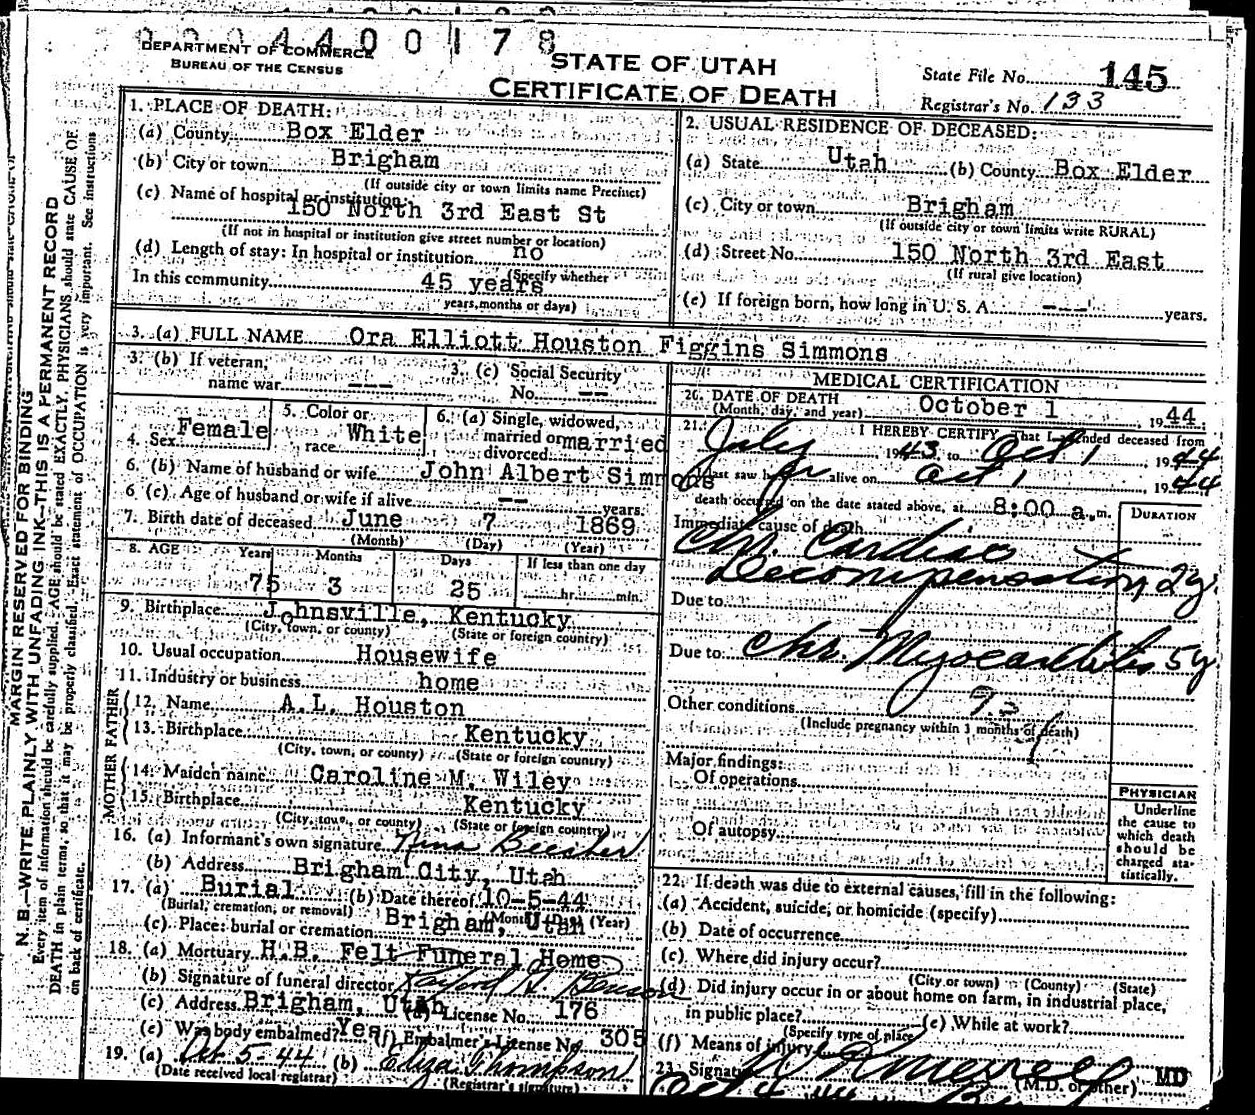 0004400178
DEPARTMENT OF COMMERCE
BUREAU OF THE CENSUS
STATE OF UTAH
CERTIFICATE OF DEATH
State File No. 145
Registrar's No. 133
MARGIN RESERVED FOR BINDING
N. B.—WRITE PLAINLY WITH UNFADING INK—THIS IS A PERMANENT RECORD
Every item of information should be carefully supplied. AGE should be stated EXACTLY. PHYSICIANS should state CAUSE OF
DEATH in plain terms, so that it may be properly classified. Exact statement of OCCUPATION is very important. See instructions
on back of certificate.
1. PLACE OF DEATH:
(a) County Box Elder
(b) City or town Brigham
(If outside city or town limits name Precinct)
(c) Name of hospital or institution:
150 North 3rd East St
(If not in hospital or institution give street number or location)
(d) Length of stay: In hospital or institution no
(Specify whether
In this community 45 years
years, months or days)
2. USUAL RESIDENCE OF DECEASED:
(a) State Utah (b) County Box Elder
(c) City or town Brigham
(If outside city or town limits write RURAL)
(d) Street No. 150 North 3rd East
(If rural give location)
(e) If foreign born, how long in U. S. A. --- years.
3. (a) FULL NAME Ora Elliott Houston Figgins Simmons
3. (b) If veteran,
name war ---
3. (c) Social Security
No. --
4. Sex Female
5. Color or
race White
6. (a) Single, widowed,
married or married
divorced
6. (b) Name of husband or wife John Albert Simmons
6 (c). Age of husband or wife if alive -- years.
7. Birth date of deceased June 7 1869
(Month) (Day) (Year)
8. AGE Years Months Days If less than one day
75 3 25 hr. min.
9. Birthplace Johnsville, Kentucky
(City, town, or county) (State or foreign country)
10. Usual occupation Housewife
11. Industry or business home
FATHER
12. Name A.L. Houston
13. Birthplace Kentucky
(City, town, or county) (State or foreign country)
MOTHER
14. Maiden name Caroline M. Wiley
15. Birthplace Kentucky
(City, town, or county) (State or foreign country)
16. (a) Informant's own signature Nina
(b) Address Brigham City, Utah
17. (a) Burial (b) Date thereof 10-5-44
(Burial, cremation, or removal) (Month) (Day) (Year)
(c) Place: burial or cremation Brigham, Utah
18. (a) Mortuary H.B. Felt Funeral Home
(b) Signature of funeral director
(c) Address Brigham, Utah (d) License No. 176
(e) Was body embalmed? Yes (f) Embalmer's License No. 305
19. (a) Oct 5-44 (b) Eliza Thompson
(Date received local registrar) (Registrar's signature)
MEDICAL CERTIFICATION
20. DATE OF DEATH
(Month, day, and year) October 1 , 1944
21. I HEREBY CERTIFY, That I attended deceased from
July 1943 to Oct 1 , 1944
I last saw her alive on Oct 1 , 1944
death occurred on the date stated above, at 8:00 a.m.
DURATION
Immediate cause of death
Chr. Cardiac
Decompensation 2y.
Due to
Due to Chr. Myocarditis 5y
Other conditions
(Include pregnancy within 3 months of death)
Major findings:
Of operations
Of autopsy
PHYSICIAN
Underline
the cause to
which death
should be
charged sta-
tistically.
22. If death was due to external causes, fill in the following:
(a) Accident, suicide, or homicide (specify)
(b) Date of occurrence
(c) Where did injury occur?
(City or town) (County) (State)
(d) Did injury occur in or about home on farm, in industrial place,
in public place? (e) While at work?
(Specify type of place)
(f) Means of injury
23. Signature (M.D. or other) MD